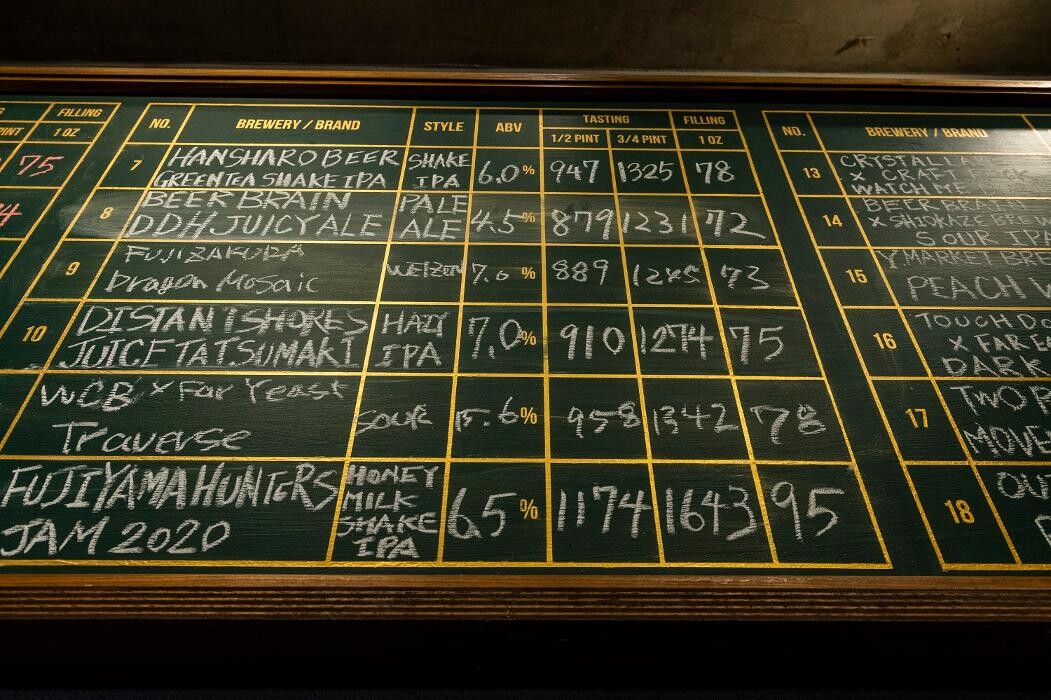 FILLING
PINT 1 OZ
75
NO. BREWERY / BRAND STYLE ABV TASTING FILLING
1/2 PINT 3/4 PINT 1 OZ
7 HANSHARO BEER SHAKE 6.0% 947 1325 78
GREENTEA SHAKE IPA IPA
8 BEER BRAIN PALE 4.5% 879 1231 72
DDH JUICY ALE ALE
9 FUJIZAKURA WEIZEN 7.0% 889 73
Dragon Mosaic
10 DISTANT SHORES HAZY 7.0% 910 1274 75
JUICETATSUMAKI IPA
WCB × Far Yeast Sour 5.6% 958 1342 78
Traverse
FUJIYAMA HUNTERS HONEY 6.5% 1174 1643 95
JAM 2020 MILK
SHAKE
IPA
NO. BREWERY / BRAND
13 CRYSTALLA
× CRAFT
WATCH ME
14 BEER BRAIN
× SHIOKAZE BREW
SOUR IPA
15 Y.MARKET BRE
PEACH W
16 TOUCH DO
× FAR EA
DARK
17 TWO
MOVE
18 OU